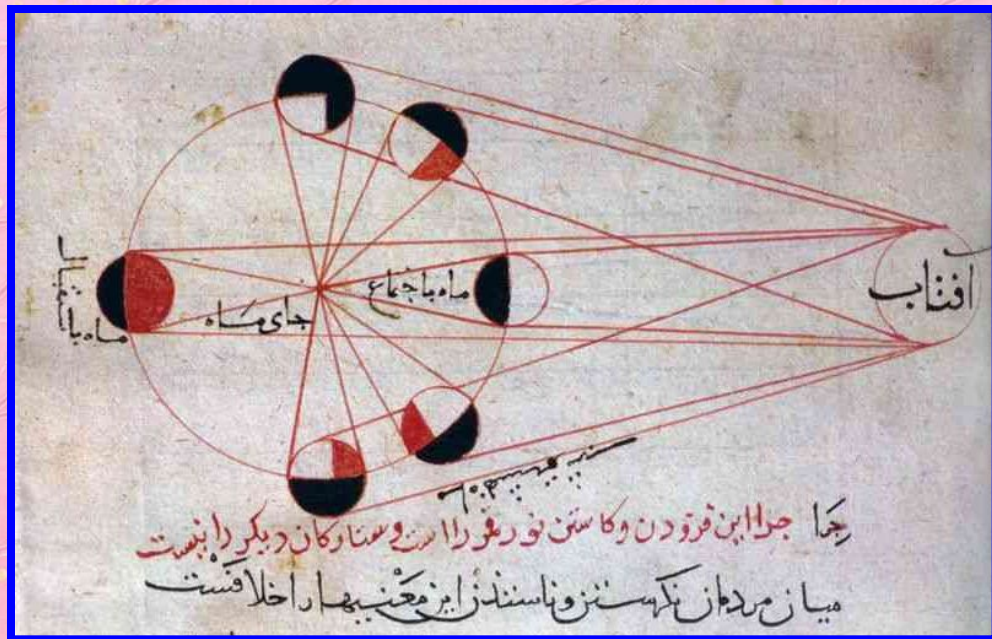 افتاب
ماه باجتماع
جای ماه
ماه باستقبال
چرا جرا این فزودن و کاستن نور قمر را است و ستارکان دیکر را نیست
میان مردمان نکرستن و ناسندن این معنیها را خلافست